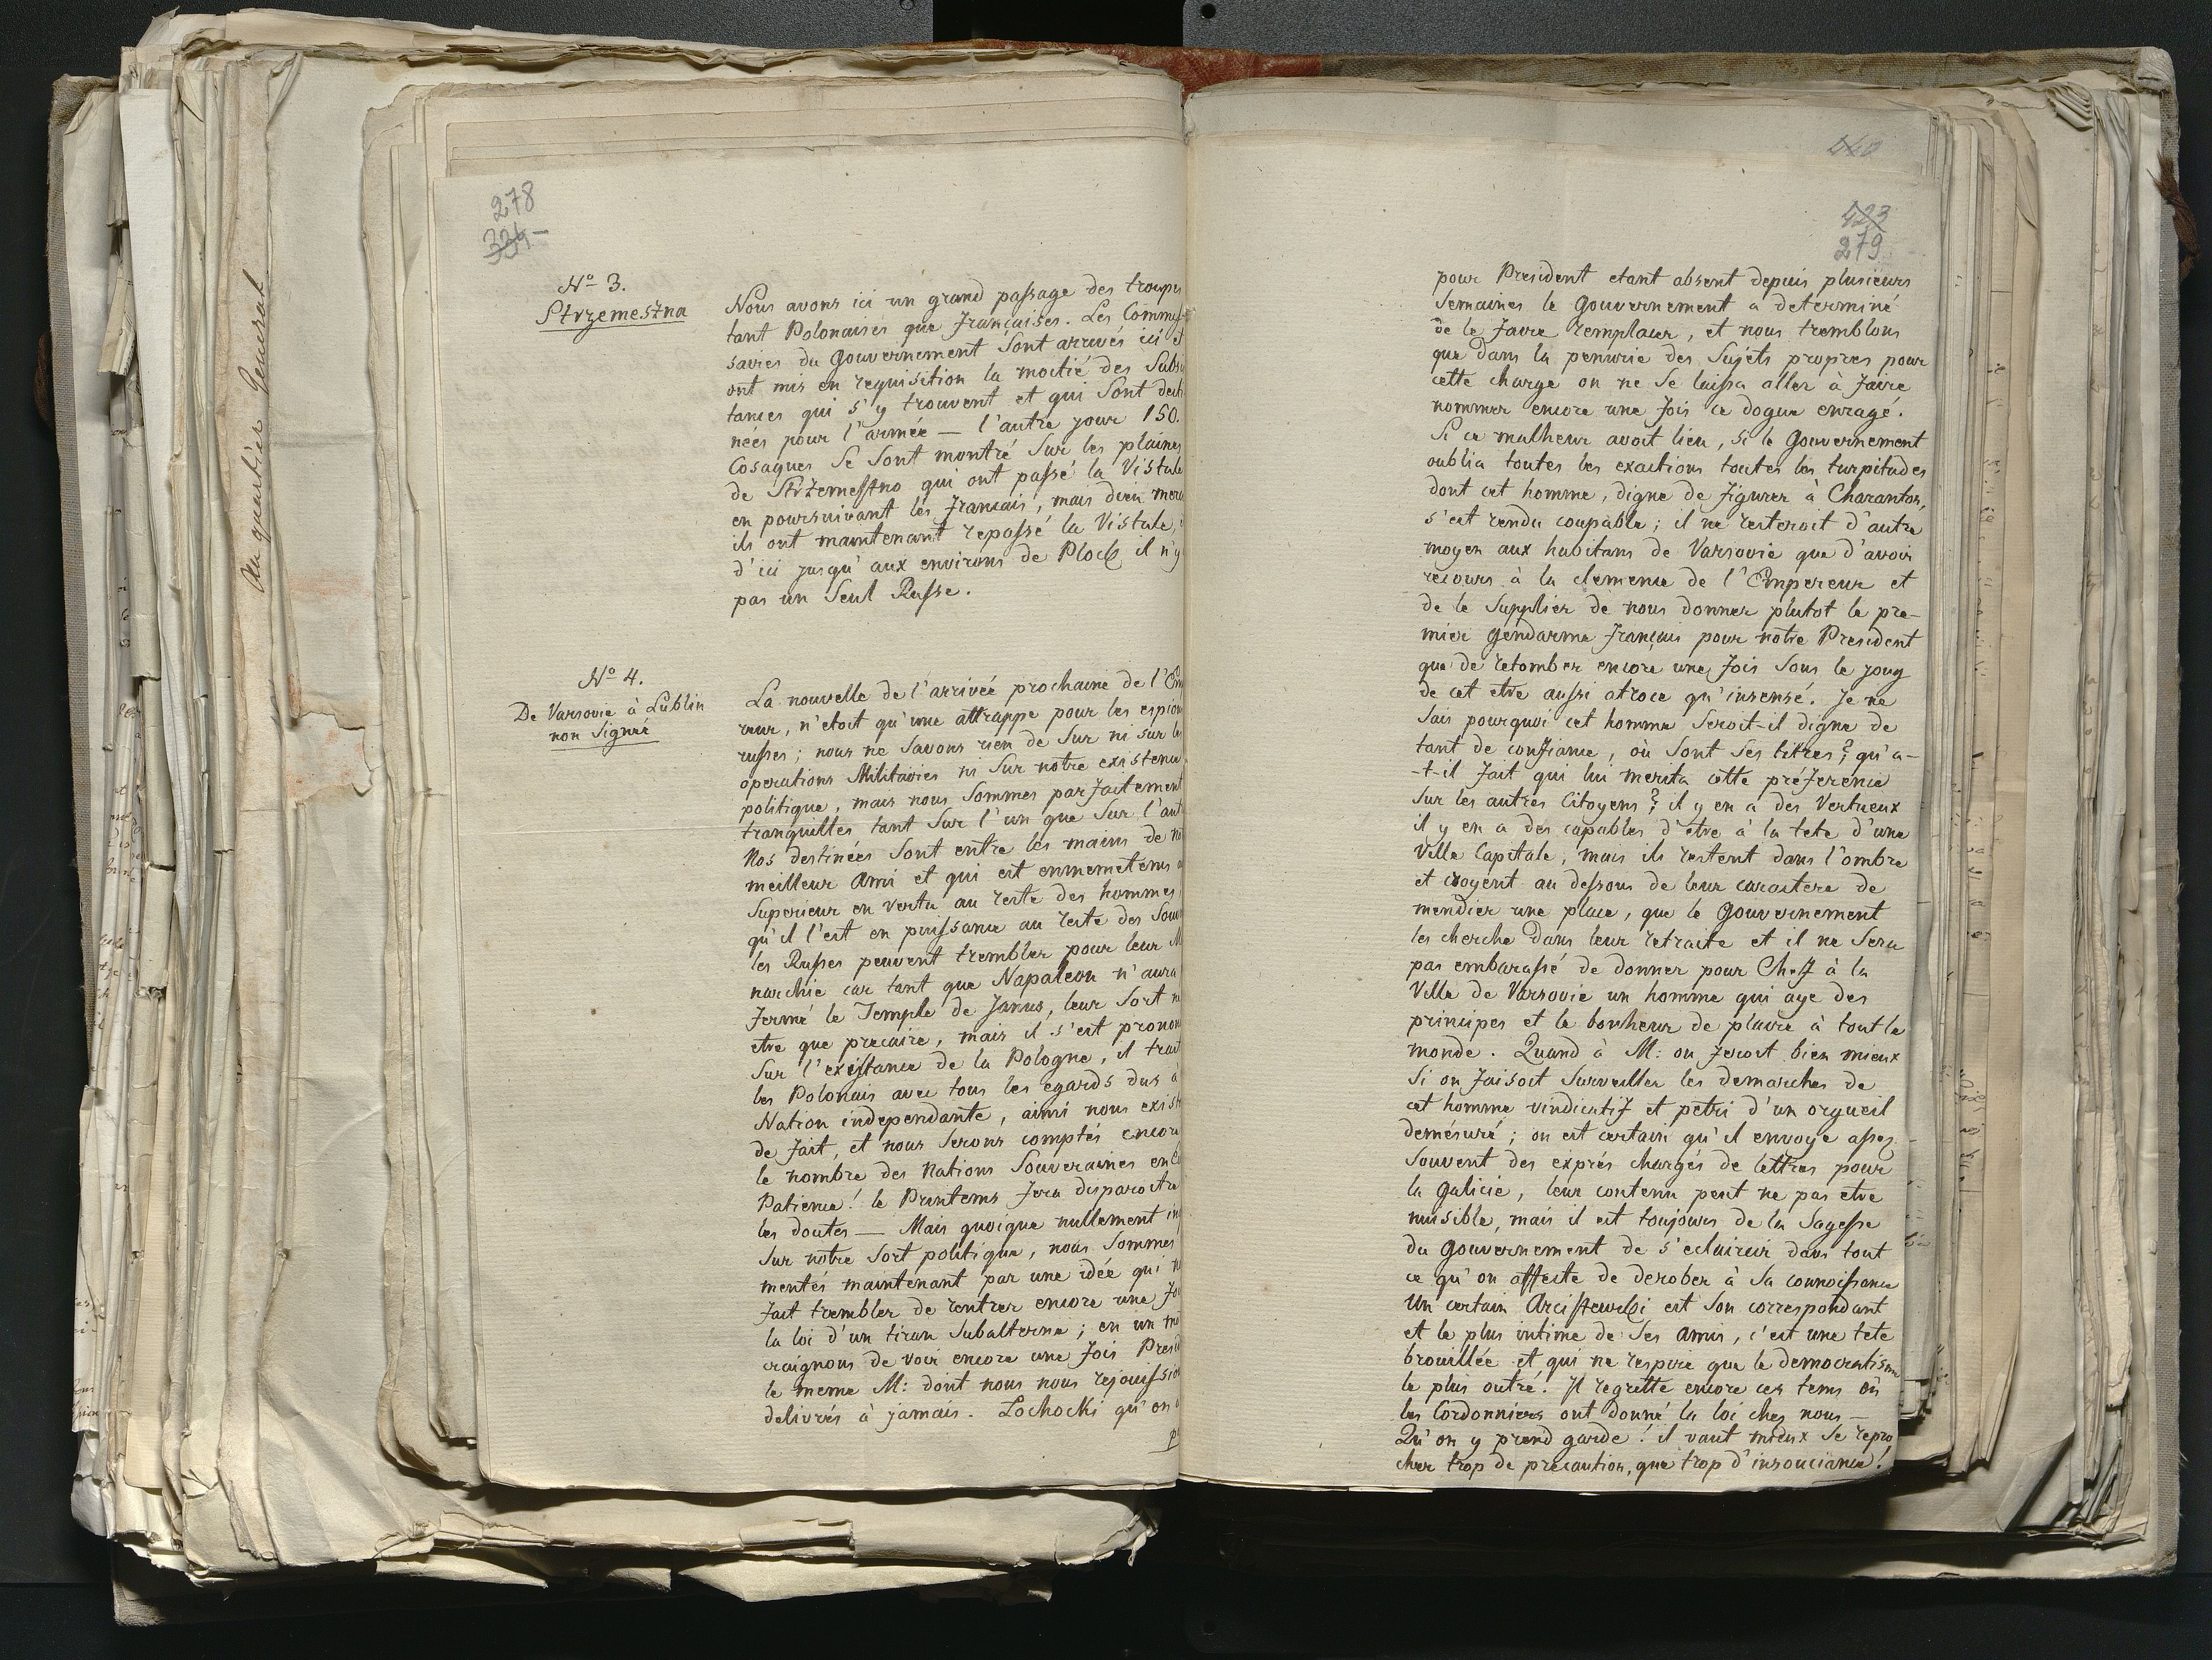 Au quartier General
278
324
No 3.
Strzemestna
Nous avons ici un grand passage des troupes
tant Polonaises que francaises. Les Commis
saries du Gouvernement sont arrivés ici et
ont mis en requisition la moitié des Subsi
tances qui s'y trouvent et qui sont desti
neés pour l'armée — l'autre jour 150.
Cosaques se sont montré sur les plaines
de Strzemestno qui ont passé la Vistule
en poursuivant les francais, mais dieu merci
ils ont maintenant repassé la Vistule,
d'ici jusqu'aux environs de Plock il n'y
pas un seul Russe.
No 4.
De Varsovie à Lublin
non signée
La nouvelle de l'arriveé prochaine de l'Em
reur, n'etoit qu'une attrappe pour les espion
russes; nous ne savons rien de sur ni sur le
operations Militaires ni sur notre existence
politique, mais nous sommes parfaitement
tranquilles tant sur l'un que sur l'aut
Nos destinées sont entre les mains de no
meilleur Ami et qui est enmemetems a
Superieur en vertu au reste des hommes
qu'il l'est en puissance au reste des Souv
les Russes peuvent trembler pour leur M
narchie car tant que Napoleon n'aura
fermé le Temple de Janus, leur sort n
etre que precaire, mais il s'est pronon
Sur l'existance de la Pologne, il trait
les Polonais avec tous les egards dus à
Nation independante, ainsi nous exist
de fait, et nous serons comptés encore
le nombre des Nations Souveraines en
Patience! le Printems fera disparoitre
les doutes — Mais quoique nullement in
Sur notre sort politique, nous sommes
mentés maintenant par une idée qui n
fait trembler de rentrer encore une fo
la loi d'un tiran Subalterne; en un mo
craignons de voir encore une fois Presid
le meme M: dont nous nous rejouission
delivrés à jamais. Lochocki qu'on
p
440
423
279
pour President etant absent depuis plusieurs
Semaines le Gouvernement a determiné
de le faire remplacer, et nous tremblons
que dans la penurie des sujets propres pour
cette charge on ne se laissa aller à faire
nommer encore une fois ce dogue enragé.
Si ce malheur avoit lieu, si le Gouvernement
oublia toutes les exactions toutes les turpitudes
dont cet homme, digne de figurer à Charanton,
s'est rendu coupable; il ne resteroit d'autre
moyen aux habitans de Varsovie que d'avoir
recours à la clemence de l'Empereur et
de le supplier de nous donner plutot le pre-
mier gendarme français pour notre President
que de retomber encore une fois sous le joug
de cet etre aussi atroce qu'insensé. Je ne
sais pourquoi cet homme seroit-il digne de
tant de confiance, où sont ses titres? qu'a-
-t-il fait qui lui merita cette preference
sur les autres Citoyens? il y en a des Vertueux
il y en a des capables d'etre à la tete d'une
Ville Capitale, mais ils restent dans l'ombre
et croyent au dessous de leur caractere de
mendier une place, que le Gouvernement
les cherche dans leur retraite et il ne sera
pas embarassé de donner pour Chef à la
Ville de Varsovie un homme qui aye des
principes et le bonheur de plaire à tout le
monde. Quand à M: on feroit bien mieux
si on faisoit surveiller les demarches de
cet homme vindicatif et petri d'un orgueil
demésuré; on est certain qu'il envoye assez
souvent des exprés chargés de lettres pour
la Galicie, leur contenu peut ne pas etre
nuisible, mais il est toujours de la Sagesse
du Gouvernement de s'eclaircir dans tout
ce qu'on affecte de derober à sa connoissance
Un certain Arciszewski est son correspondant
et le plus intime de ses Amis, c'est une tete
brouillée et qui ne respire que le democratisme
le plus outré. Il regrette encore ces tems où
les Cordonniers ont donné la loi ches nous —
Qu'on y prend garde! il vaut mieux se repro
cher trop de precaution, que trop d'insouciance!